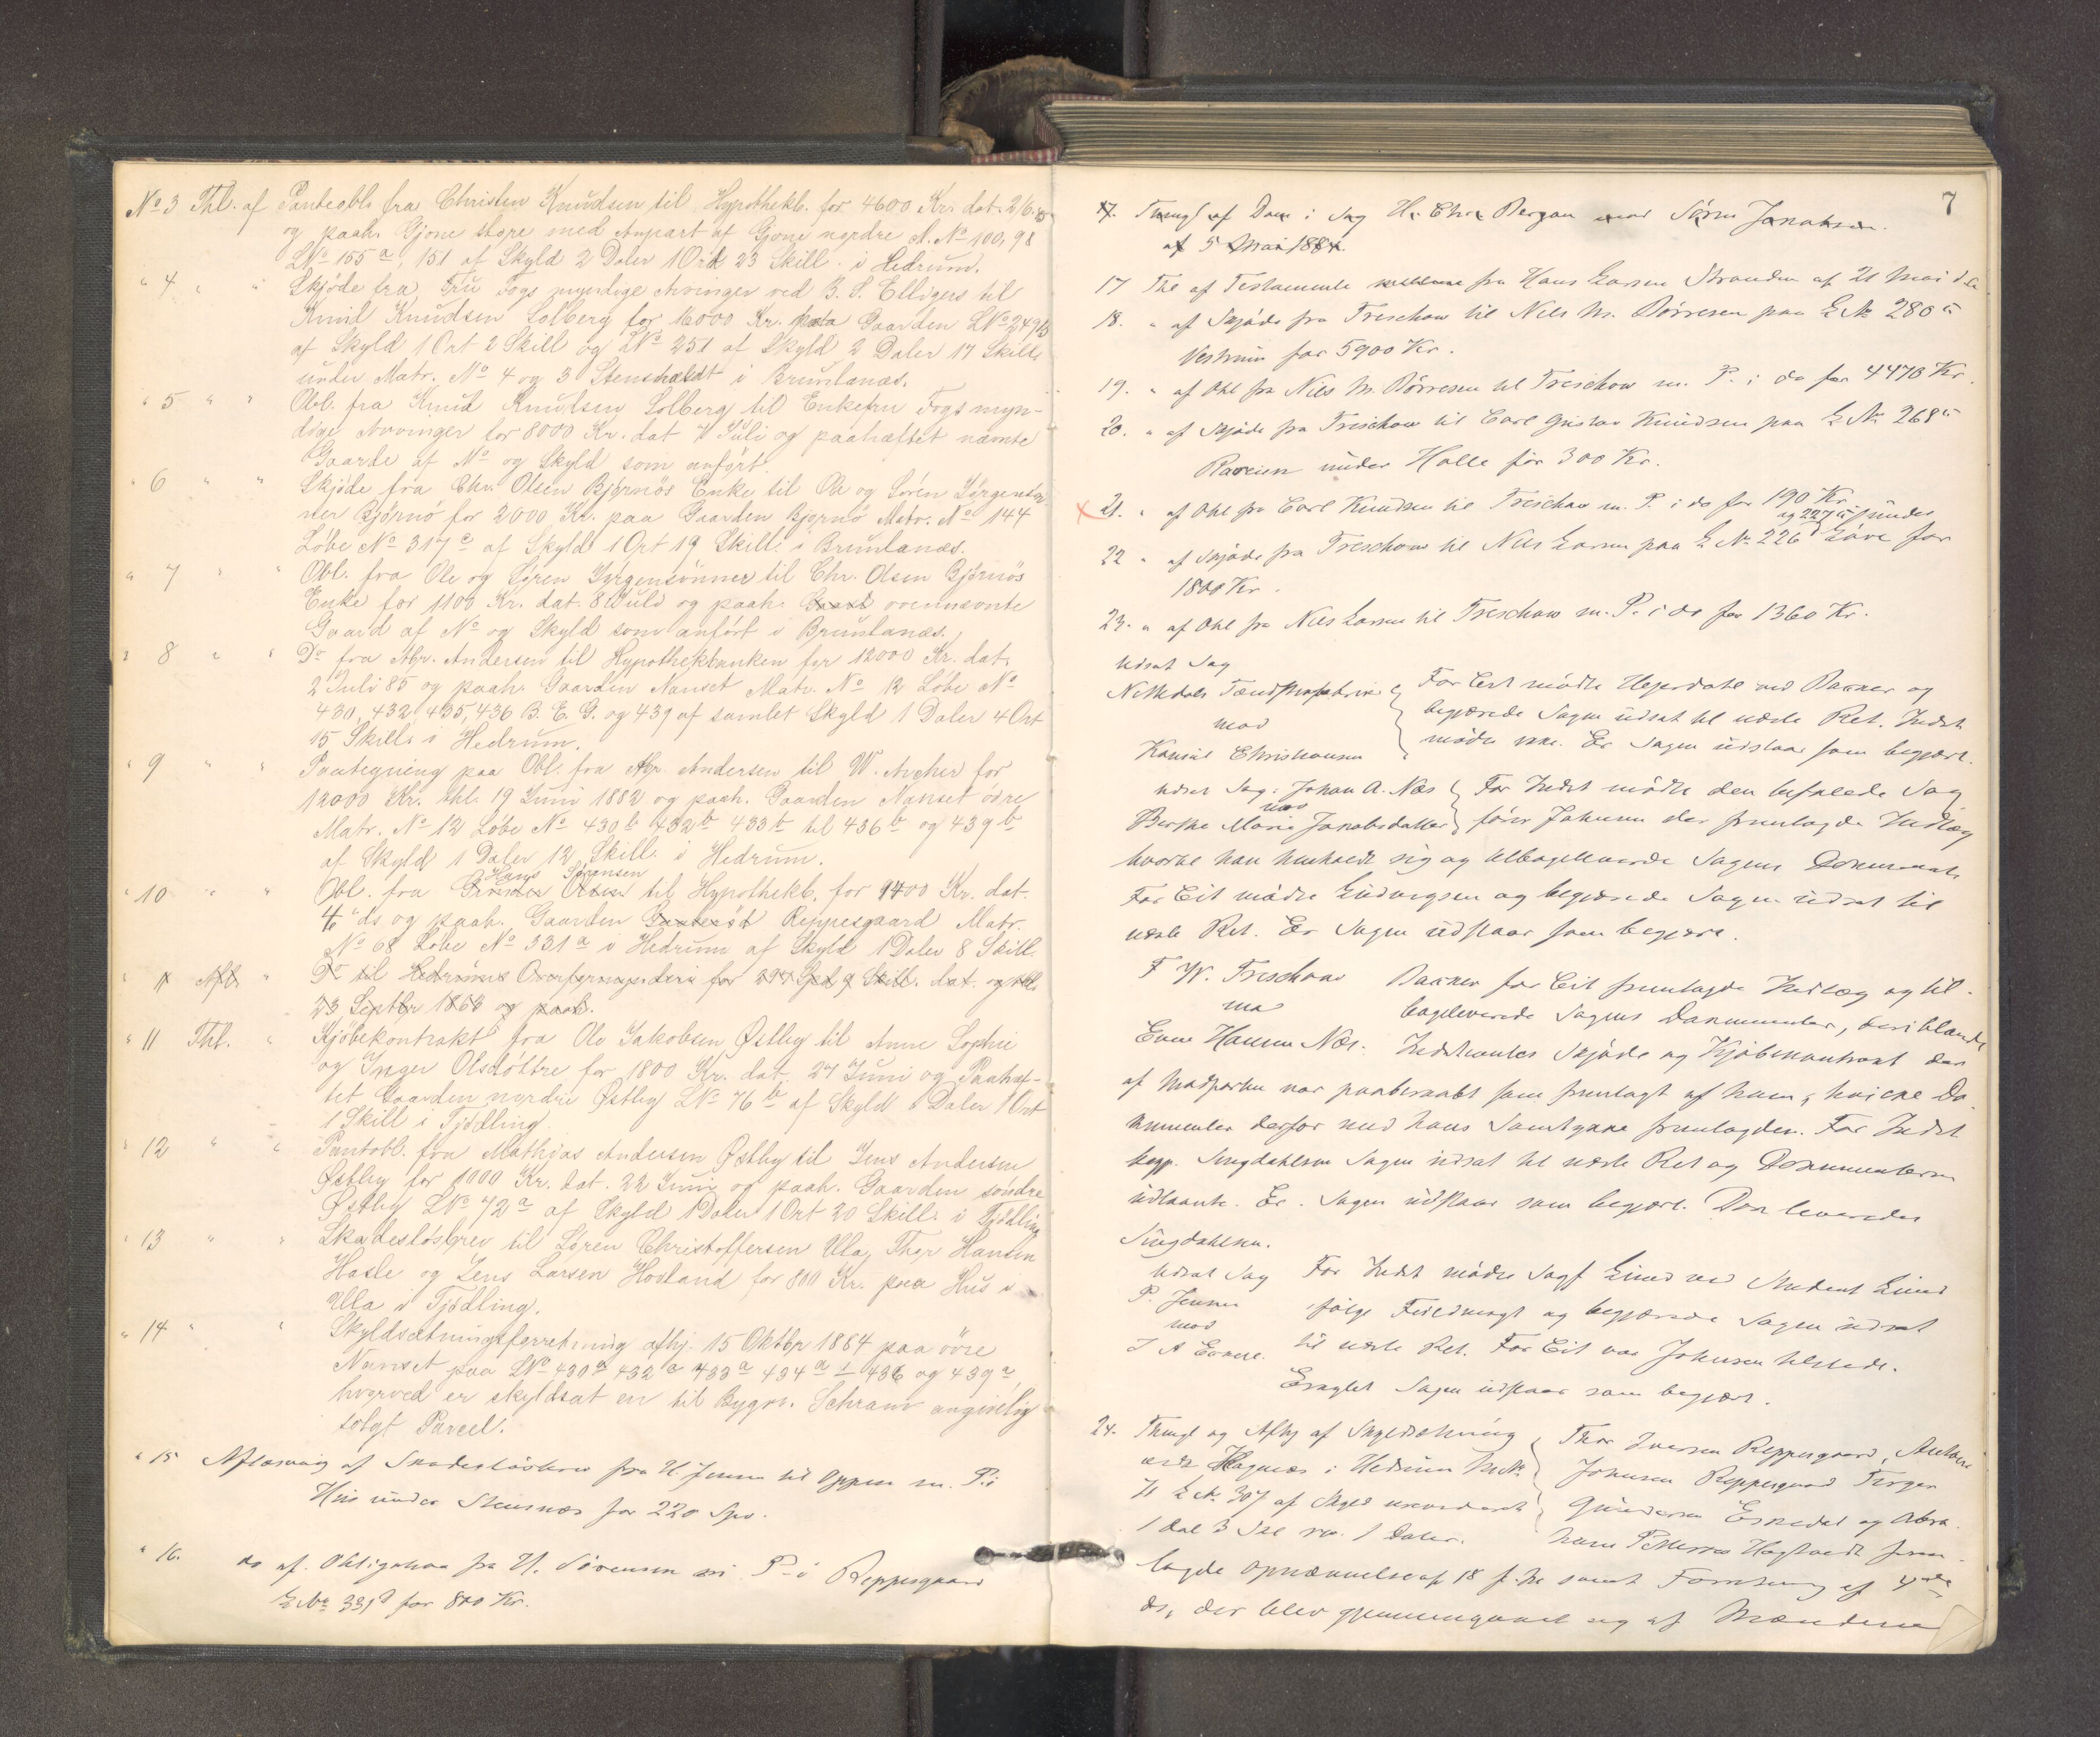 No 3 Thl. af Panteobl. fra Christen Knudsen til Hypothekb. for 4600 Kr. dat. 2/6. 85
og paah. Gjone store med Anpart af Gjone nordre M. No 100, 98
LNo 155 a, 151 af Skyld 2 Daler 1 Ort 23 Skill. i Hedrum.
" 4 " " Skjøde fra Fru Fogs myndige Arvinger ved B. S. Elligers til
Knud Knudsen Solberg for 16000 Kr. paa Gaarden LNo 249 b
af Skyld 1 Ort 2 Skill og LNo 251 af Skyld 2 Daler 17 Skill.
under Matr. No 4 og 3 Stensholdt i Brunlanæs.
" 5 " " Obl. fra Knud Knudsen Solberg til Enkefru Fogs myn-
dige Arvinger for 8000 Kr. dat 7 Juli og paahæftet nævnte
Gaarde af No og Skyld som anført.
" 6 " " Skjøde fra Chr. Olsen Bjørnøs Enke til Ole og Søren Jørgensøn-
ner Bjørnø for 2000 Kr. paa Gaarden Bjørnø Matr. No 144
Løbe No 317 c af Skyld 1 Ort 19 Skill. i Brunlanæs.
" 7 " " Obl. fra Ole og Søren Jørgensønner til Chr. Olsen Bjørnøs
Enke for 1100 Kr. dat. 8 Juli og paah. ovennævnte
Gaard af No og Skyld som anført i Brunlanæs.
" 8 " " Do fra Abr. Andersen til Hypothekbanken for 12000 Kr. dat.
2 Juli 85 og paah. Gaarden Nanset Matr. No 12 Løbe No
430, 432, 435, 436 B. E. G. og 439 af samlet Skyld 1 Daler 4 Ort
15 Skill. i Hedrum.
" 9 " " Paategning paa Obl. fra Abr. Andersen til W. Archer for
12000 Kr. thl. 19 Juni 1882 og paah. Gaarden Nanset øvre
Matr. No 12 Løbe No 430 b 432 b 433 b til 436 b og 439 b
af Skyld 1 Daler 12 Skill. i Hedrum.
Hans Sørensen
" 10 " " Obl. fra til Hypothekb. for 9400 Kr. dat.
4/6 ds og paah. Gaarden Reppesgaard Matr.
No 68 Løbe No 331 a i Hedrum af Skyld 1 Daler 8 Skill.
" 11 Afl. " Do til Hedrums Overformynderi for 294 Spd 9 Skill. dat. og thl.
23 Septbr 1863 og paah.
" 11 Thl. " Kjøbekontrakt fra Ole Jakobsen Østby til Anne Sophie
og Inger Olsdøttre for 1800 Kr. dat. 24 Juni og Paahæf-
tet Gaarden nordre Østby LNo 76 b af Skyld Daler 1 Ort
1 Skill i Tjødling.
" 12 " " Pantobl. fra Mathias Andersen Østby til Jens Andersen
Østby for 1000 Kr. dat. 22 Juni og paah. Gaarden søndre
Østby LNo 72 a af Skyld 1 Daler 1 Ort 20 Skill. i Tjødling
" 13 " " Skadesløsbrev til Søren Christoffersen Ula, Thor Hansen
Hasle og Jens Larsen Hovland for 800 Kr. paa Hus i
Ula i Tjødling.
" 14 " " Skyldsætningsforretning afhj. 15 Oktbr 1884 paa øvre
Nanset paa LNo 430 a 432 a 433 a 434 a 436 og 439 a,
hvorved er skyldsat en til Bygm. Schram angivelig
solgt Parcel.
" 15 Aflæsning af Skadesløsbrev fra H. Jensen til Oppen m. P. i
Hus under Stensnæs for 220 Spd.
" 16. do af Obligation fra H. Sørensen m P. i Reppesgaard
L No 331 d for 800 Kr.
7
17. Thingl. af Dom i Sag H. Chr. Bergan mod Søren Jakobsen
af 5 Mai 1884
17 Thl af Testamente fra Hans Larsen Stranden af 21 Mai d.A
18. " af Skjøde fra Treschow til Nils M. Børresen paa L No 280 a
Vestrum for 5900 Kr.
19. " af Obl fra Nils M. Børresen til Treschow m. P. i do for 4470 Kr.
20. " af Skjøde fra Treschow til Carl Gustav Knudsen paa L No 268 a
under Halle for 300 Kr.
21. " af Obl fra Carl Knudsen til Treschow m. P. i do for 190 Kr
og 227 a under
22 " af Skjøde fra Treschow til Nils Larsen paa L No 226 d for
1800 Kr.
23. " af Obl fra Nils Larsen til Treschow m. P. i do for 1360 Kr.
Udsat Sag
Nittedals Tændstikfabrik For Cit mødte Hejerdahl ved Bakker og
mod begjærede Sagen udsat til næste Ret. Indst.
Konsul Christiansen mødte ikke. Er Sagen udstaar som begjært.
Udsat Sag: Johan A. Næs For Indst mødte den befalede Sag
mod
Berthe Marie Jakobsdatter fører Johnsen der fremlagde Indlæg
hvortil han henholdt sig og tilbageleverede Sagens Dokumenter
For Cit mødte Ludvigsen og begjærede Sagen udsat til
næste Ret. Er Sagen udstaar som begjært.
F W. Treschow Bakker for Cit fremlagde Indlæg og til-
mod bageleverede Sagens Dokumenter, deriblandt
Even Hansen Næs. Indstevntes Skjøde og Kjøbekontrakt der
af Modparten var paaberaabt som fremlagt af ham, hvilke Do
kumenter derfor med hans Samtykke fremlagdes. For Indst
begj. Syngdahlsen Sagen udsat til næste Ret og Dokumenterne
udlaante. Er. Sagen udstaar som begjært. Dok leveredes
Syngdahlsen.
Udsat Sag For Indst mødte Sagf Lund ved Student Lund
P. Jensen ifølge Fuldmagt og begjærede Sagen udsat
mod til næste Ret. For Cit var Johnsen tilstede.
J A Eskell. Eragtet Sagen udstaar som begjært.
24. Thingl og Afhj af Skyldsætning Thor Iversen Reppesgaard, Anders
Hagnæs i Hedrum M No Johnsen Reppesgaard Torger
71 L No 307 af Skyld urevideret Gundersen Eskedal og Abra-
1 Dal 3 Skl rev. 1 Daler. ham Pettersen Hagtvedt frem-
lagde Opnævnelse af 18 f. M samt Forretning af 4de
ds, der blev gjennemgaaet og af Mændene